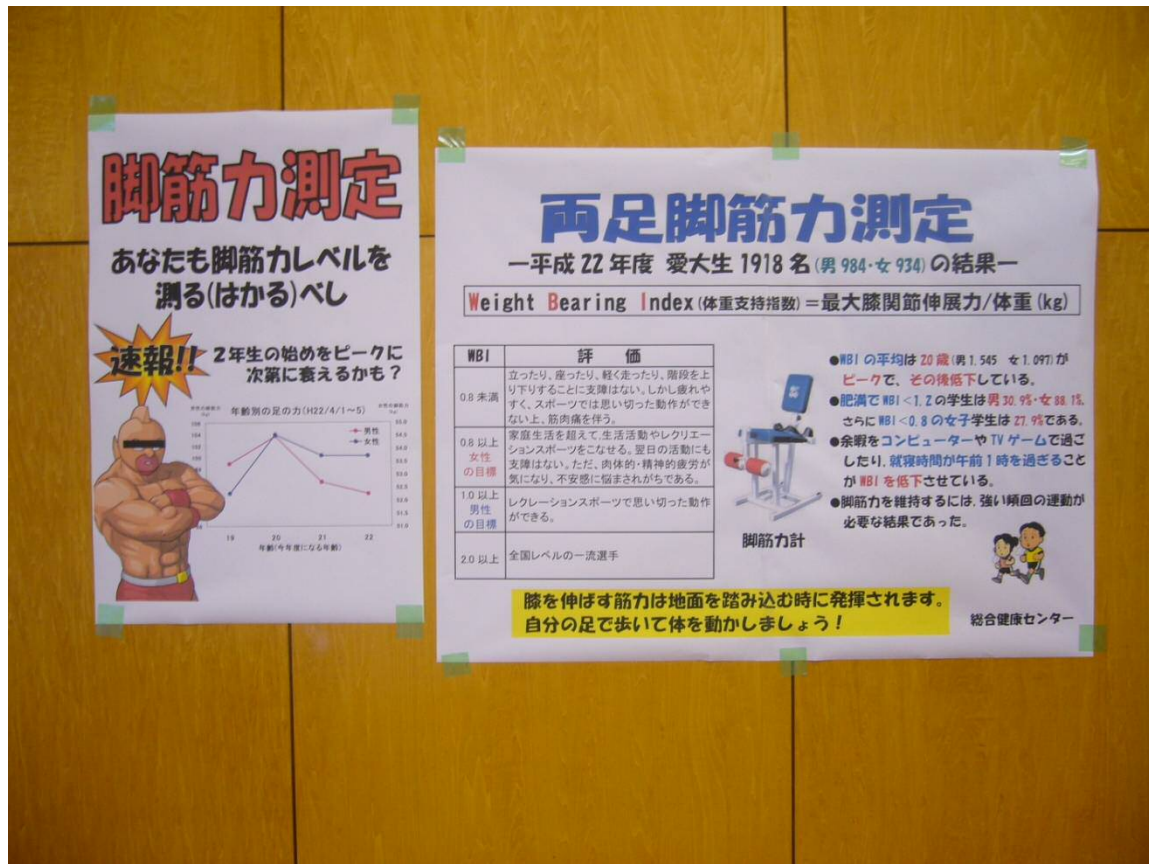 脚筋力測定
あなたも脚筋力レベルを
測る(はかる)べし
速報!!
2年生の始めをピークに
次第に衰えるかも？
年齢別の足の力(H22/4/1～5)
男性
女性
19 20 21 22
年齢(今年度になる年齢)
両足脚筋力測定
ー平成22年度 愛大生1918名(男984・女934)の結果ー
Weight Bearing Index(体重支持指数)=最大膝関節伸展力/体重(kg)
WBI 評 価
0.8 未満
立ったり、座ったり、軽く走ったり、階段を上
り下りすることに支障はない。しかし疲れや
すく、スポーツでは思い切った動作ができ
ない上、筋肉痛を伴う。
0.8 以上
女性
の目標
家庭生活を超えて、生活活動やレクリエー
ションスポーツをこなせる。翌日の活動にも
支障はない。ただ、肉体的・精神的疲労が
気になり、不安感に悩まされがちである。
1.0 以上
男性
の目標
レクレーションスポーツで思い切った動作
ができる。
2.0 以上 全国レベルの一流選手
脚筋力計
●WBIの平均は20歳(男1.545 女1.097)が
ピークで、その後低下している。
●肥満でWBI<1.2の学生は男30.9%・女88.1%、
さらにWBI<0.8の女子学生は27.9%である。
●余暇をコンピューターやTVゲームで過ご
したり、就寝時間が午前1時を過ぎること
がWBIを低下させている。
●脚筋力を維持するには、強い頻回の運動が
必要な結果であった。
膝を伸ばす筋力は地面を踏み込む時に発揮されます。
自分の足で歩いて体を動かしましょう！
総合健康センター